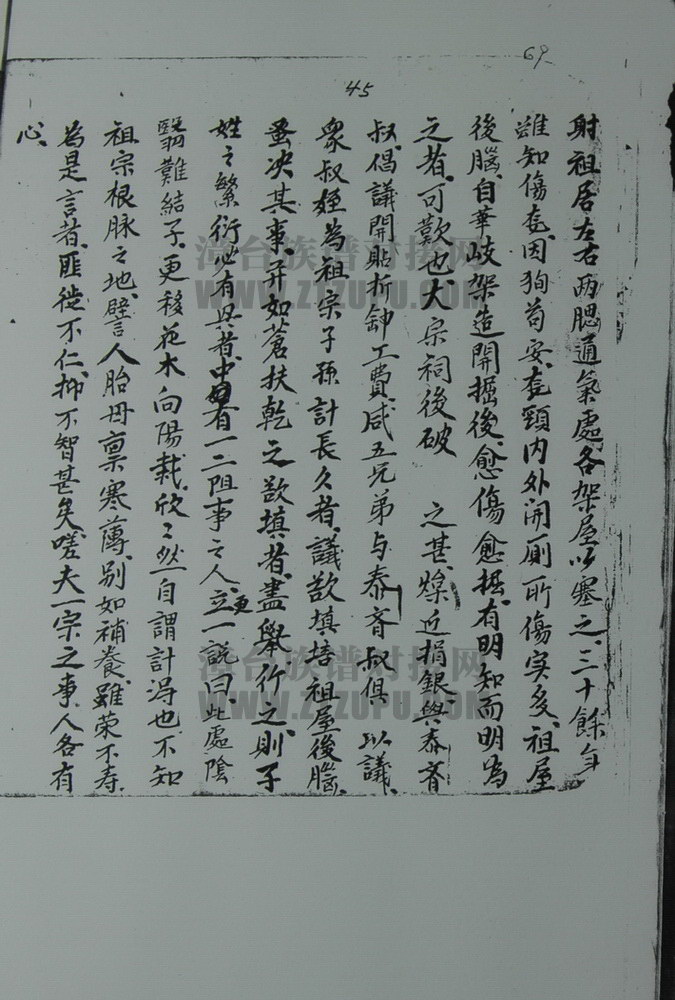 69
45
射祖居左右两腮通氣處各架屋以塞之三十餘年
雖知傷在因狗苟安在頸内外開厠所傷实多祖屋
後腦自華岐架造開掘後愈傷愈掘有明知而明為
之者可歎也大宗祠後破 之甚燦近捐銀與泰斉
叔倡議開貼折缷工費咸五兄弟与泰斉叔俱 以議
衆叔姪為祖宗子孫計長久者議欲填培祖屋後腦
蚤决其事并如蒼扶乾之欲填者盡舉行之則子
姓之繁衍必有異者中有一二阻事之人更立一説曰此處陰
翳難結子更移花木向陽栽欣〻然自謂計得也不知
祖宗根脉之地譬人胎母禀寒薄别如補養雖荣不寿
為是言者匪徒不仁抑不智甚矣嗟夫一宗之事人各有
心
漳台族谱对接网
WWW.ZTZUPU.COM
漳台族谱对接网
WWW.ZTZUPU.COM